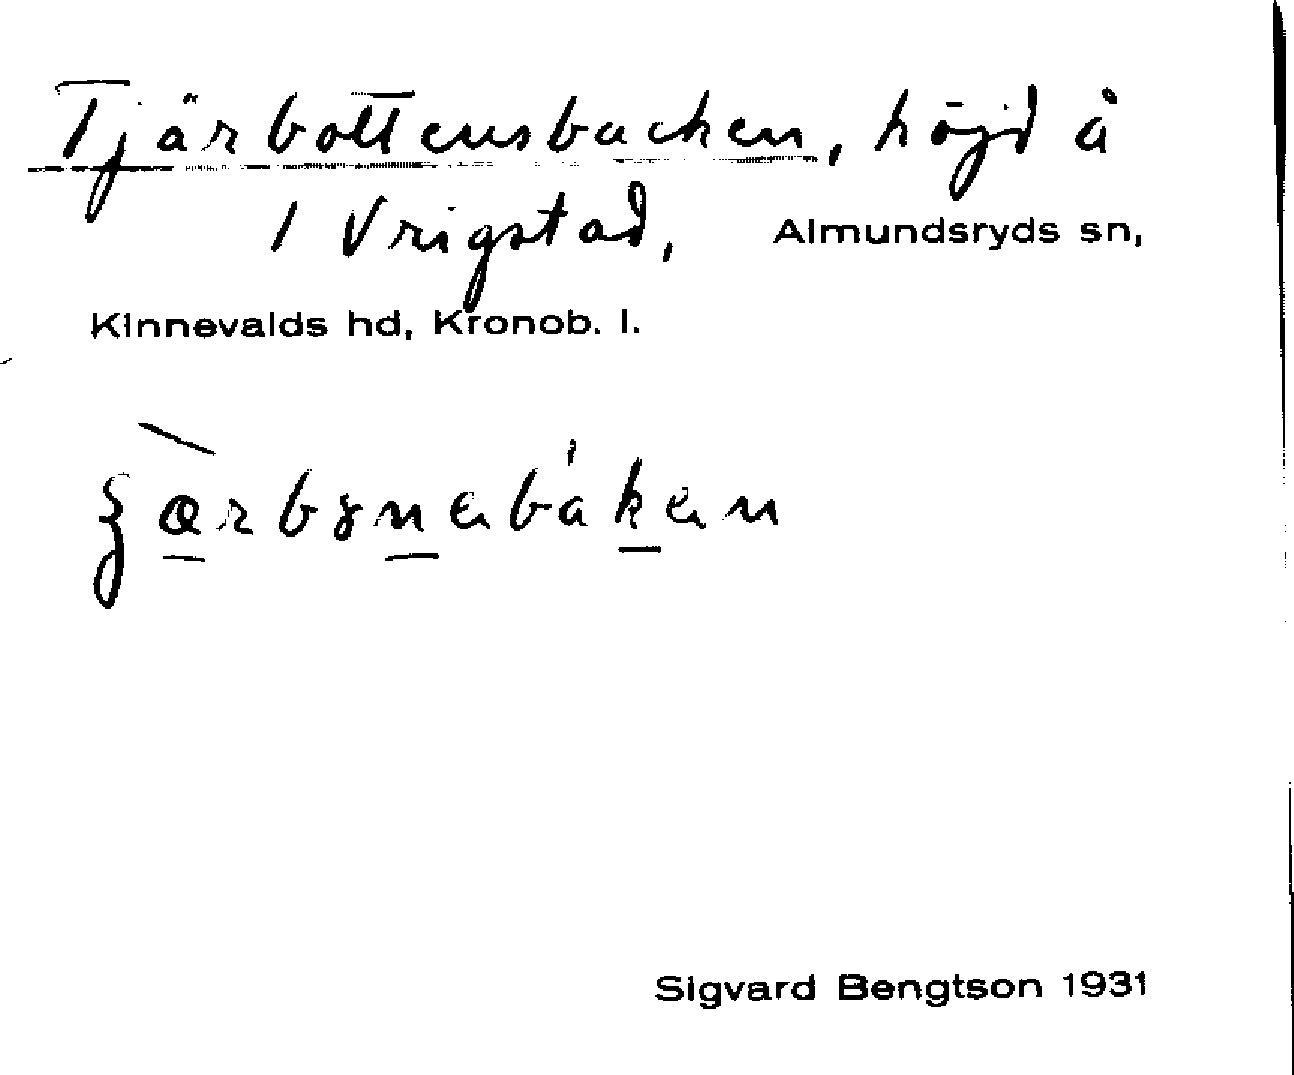 Tjärbottensbacken, höjd å
1 Vrigstad, Almundsryds sn,
Kinnevalds hd, Kronob. l.
Sigvard Bengtson 1931